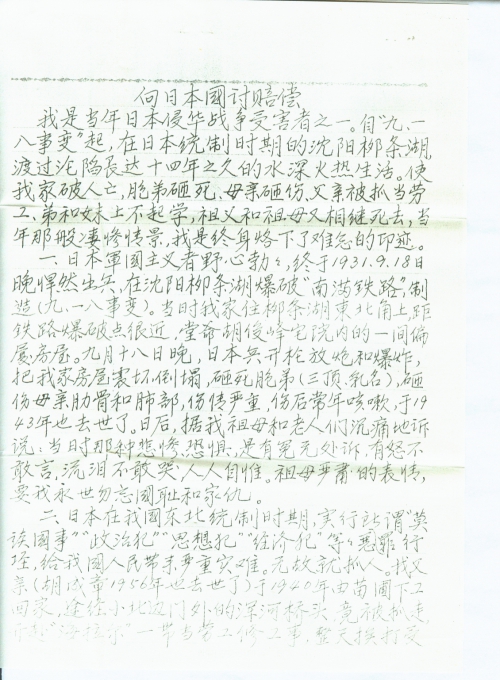 向日本國討賠偿
我是当年日本侵华战争受害者之一。自"九、一
八事变"起,在日本统制时期的沈阳柳条湖,
渡过沦陷長达十四年之久的水深火热生活。使
我家破人亡,胞弟砸死、母亲砸伤、父亲被抓当劳
工、弟和妹上不起学,祖父和祖母又相继死去,当
年那般凄惨情景,我是终身烙下了难忘的印迹。
一、日本軍國主义者野心勃々,终于1931.9.18日
晚悍然出兵,在沈阳柳条湖爆破"南满铁路"制
造(九、一八事变)。当时我家住柳条湖東北角上,距
铁路爆破点很近,堂爷胡俊峰宅院内的一间偏
厦房屋。九月十八日晚,日本兵开枪放炮和爆炸,
把我家房屋震坏倒塌,砸死胞弟(三顶、乳名),砸
伤母亲肋骨和肺部,伤情严重,伤后常年咳嗽,于19
43年也去世了。日后,据我祖母和老人们沉痛地诉
说:当时那种悲惨、恐惧,是有冤无处诉,有怒不
敢言,流泪不敢哭,人人自惟。祖母严肃的表情,
要我永世勿忘國耻和家仇。
二、日本在我國东北统制时期,实行所谓"莫
谈國事""政治犯""思想犯""经济犯"等々惡罪行
径,给我國人民带来严重灾难,无故就抓人。我父
亲(胡成章1956年也去世了)于1940年由苗圃下工
回家,途经小北边门外的深河桥头,竟被抓走,
"海拉尔"一带当劳工修工事,整天挨打受